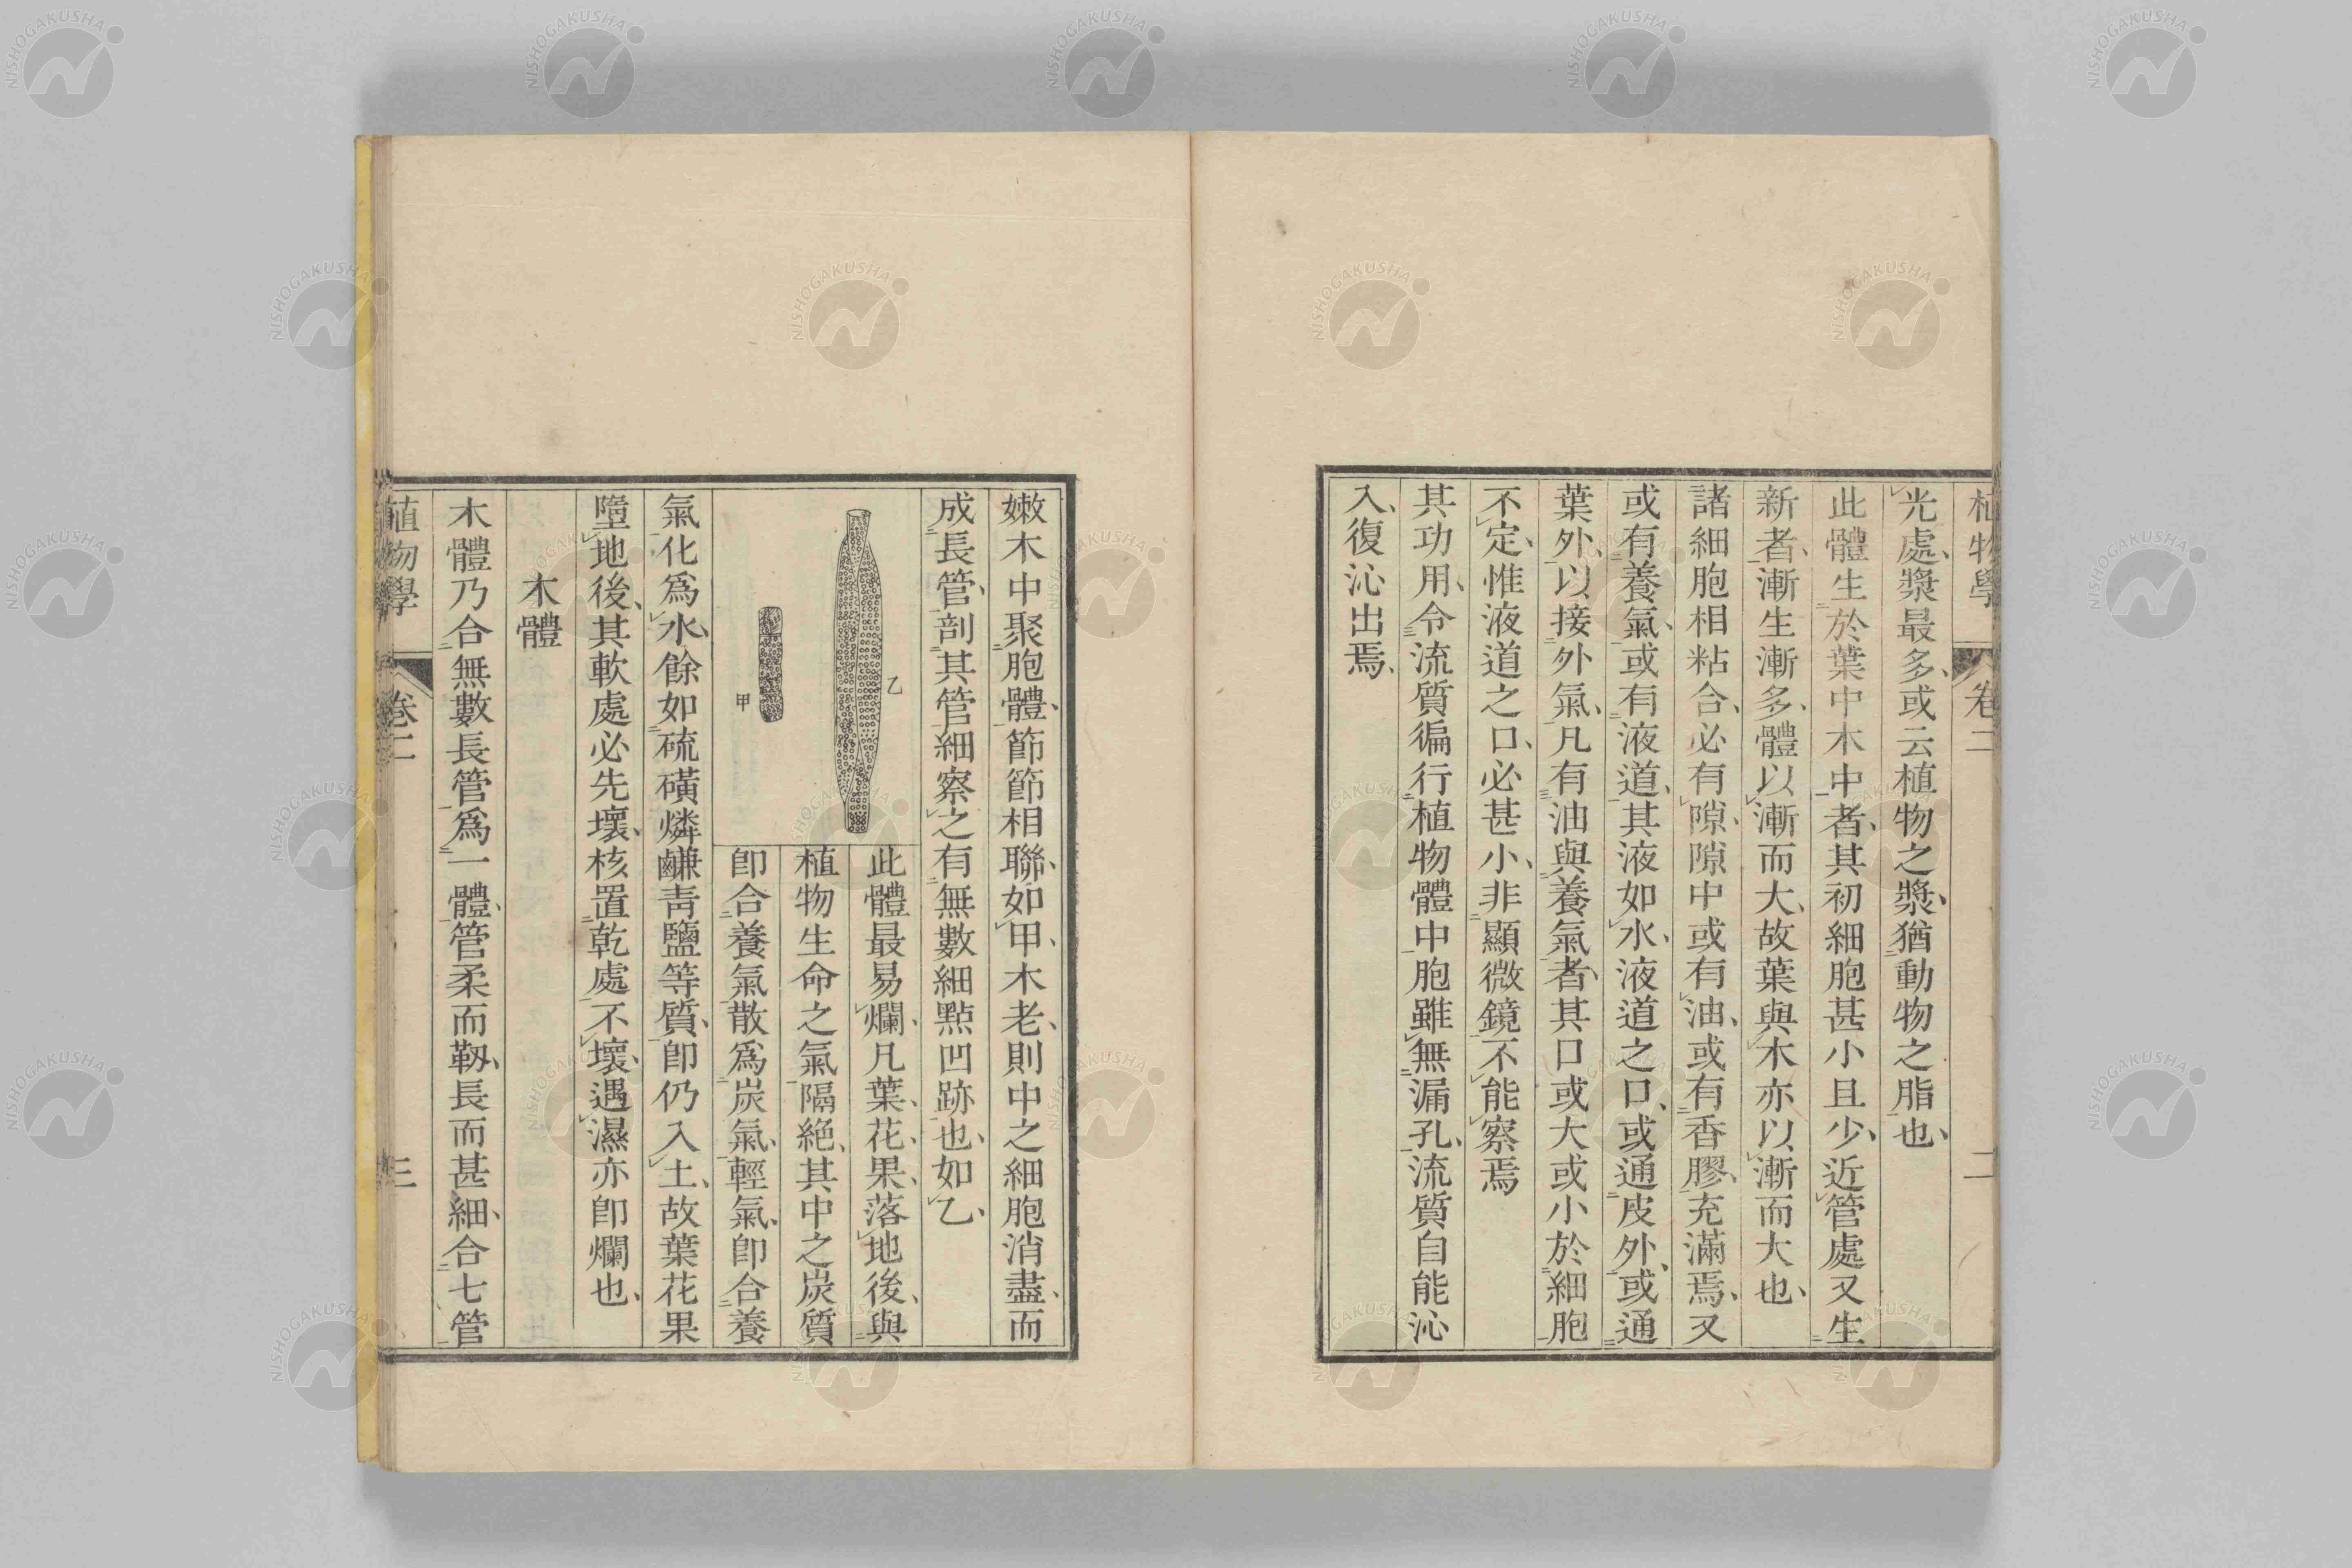 植物學 卷二 二
光處、漿最多、或云植物之漿、猶動物之脂也、
此體生於葉中木中者、其初細胞甚小且少、近管處又生
新者、漸生漸多、體以漸而大、故葉與木亦以漸而大也、
諸細胞相粘合、必有隙、隙中或有油、或有香膠、充滿焉、又
或有養氣、或有液道、其液如水、液道之口、或通皮外、或通
葉外、以接外氣、凡有油與養氣者、其口或大或小於細胞
不定、惟液道之口、必甚小、非顯微鏡不能察焉
其功用、令流質徧行植物體中胞雖無漏孔、流質自能沁
入、復沁出焉、
嫩木中聚胞體、節節相聯、如甲、木老、則中之細胞消盡、而
成長管、剖其管細察之有無數細點凹跡也、如乙、
乙
甲
此體最易爛、凡葉、花、果、落地後、與
植物生命之氣隔絶、其中之炭質
卽合養氣散爲炭氣、輕氣、卽合養
氣化爲水、餘如硫磺燐鹻靑鹽等質、卽仍入土、故葉花果
墮地後、其軟處必先壞、核置乾處不壞、遇濕亦卽爛也、
木體
木體乃合無數長管爲一體、管柔而韌、長而甚細、合七管
植物學 卷二 三